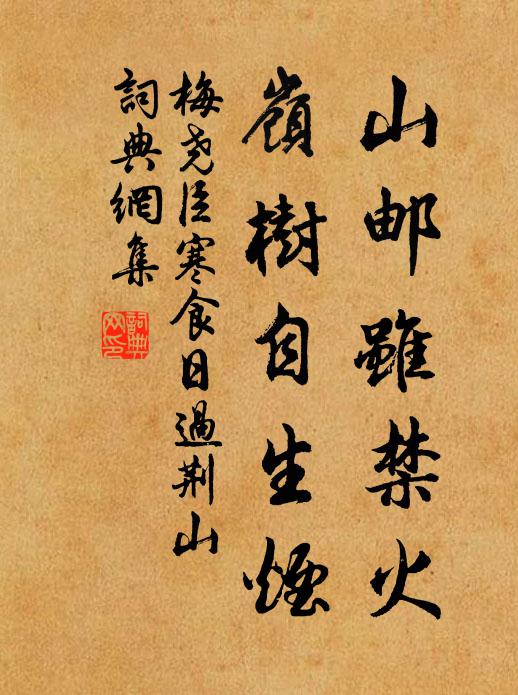 山邮雖禁火
嶺樹自生煙
梅尧臣寒食日過荆山
詞典網集
詞典网印